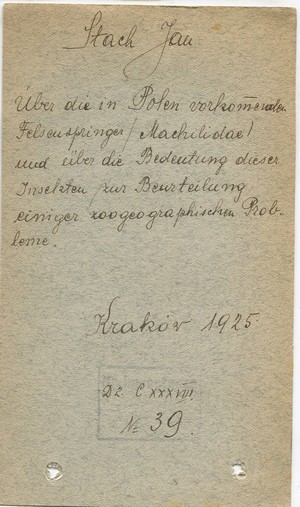 Stach Jan
Über die in Polen vorkom̅enden
Felsenspringer /Machilidae/
und über die Bedeutung dieser
Insekten zur Beurteilung
einiger zoogeographischen Prob-
leme.
Kraków 1925.
Dz. C XXXVIII
№ 39.